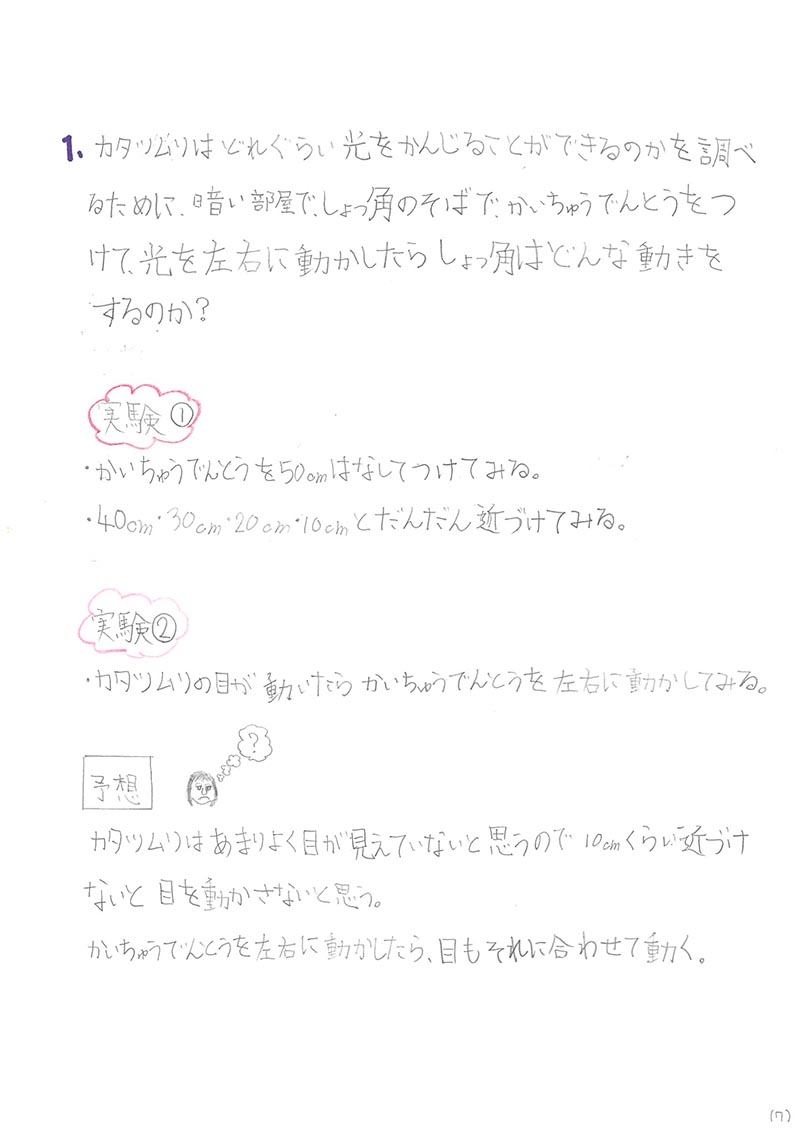 1. カタツムリはどれぐらい光をかんじることができるのかを調べ
るために、暗い部屋で、しょっ角のそばで、かいちゅうでんとうをつ
けて、光を左右に動かしたらしょっ角はどんな動きを
するのか?
実験①
・かいちゅうでんとうを50cmはなしてつけてみる。
・40cm・30cm・20cm・10cmとだんだん近づけてみる。
実験②
・カタツムリの目が動いたらかいちゅうでんとうを左右に動かしてみる。
?
予想
カタツムリはあまりよく目が見えていないと思うので10cmくらい近づけ
ないと目を動かさないと思う。
かいちゅうでんとうを左右に動かしたら、目もそれに合わせて動く。
(7)